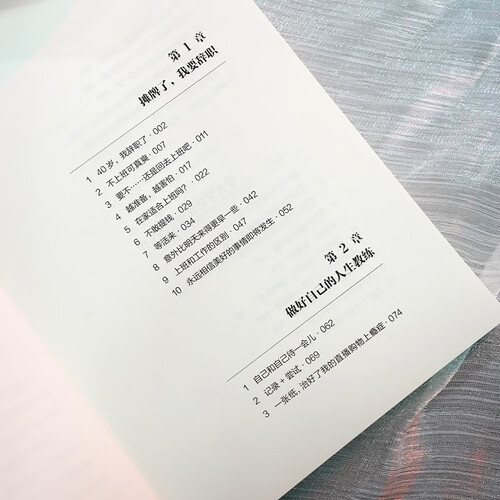 第 1 章
摊牌了，我要辞职
1 40 岁，我辞职了 · 002
2 不上班可真爽 · 007
3 要不……还是回去上班吧 · 011
4 越准备，越害怕 · 017
5 在家适合上班吗？ · 022
6 不敢提钱 · 029
7 等活来 · 034
8 意外比明天来得更早一些 · 042
9 上班和工作的区别 · 047
10 永远相信美好的事情即将发生 · 052
第 2 章
做好自己的人生教练
1 自己和自己待一会儿 · 062
2 记录 + 尝试 · 069
3 一张纸，治好了我的直播购物上瘾症 · 074